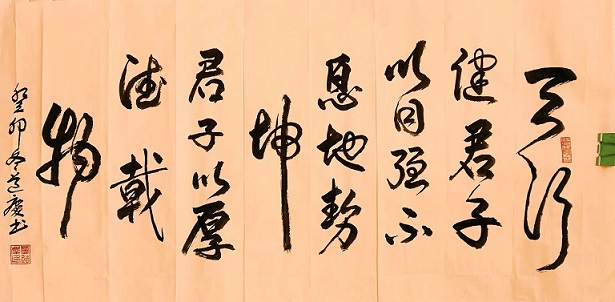 天行
健君子
以自强不
息地势
坤
君子以厚
德載
物
癸卯冬
书